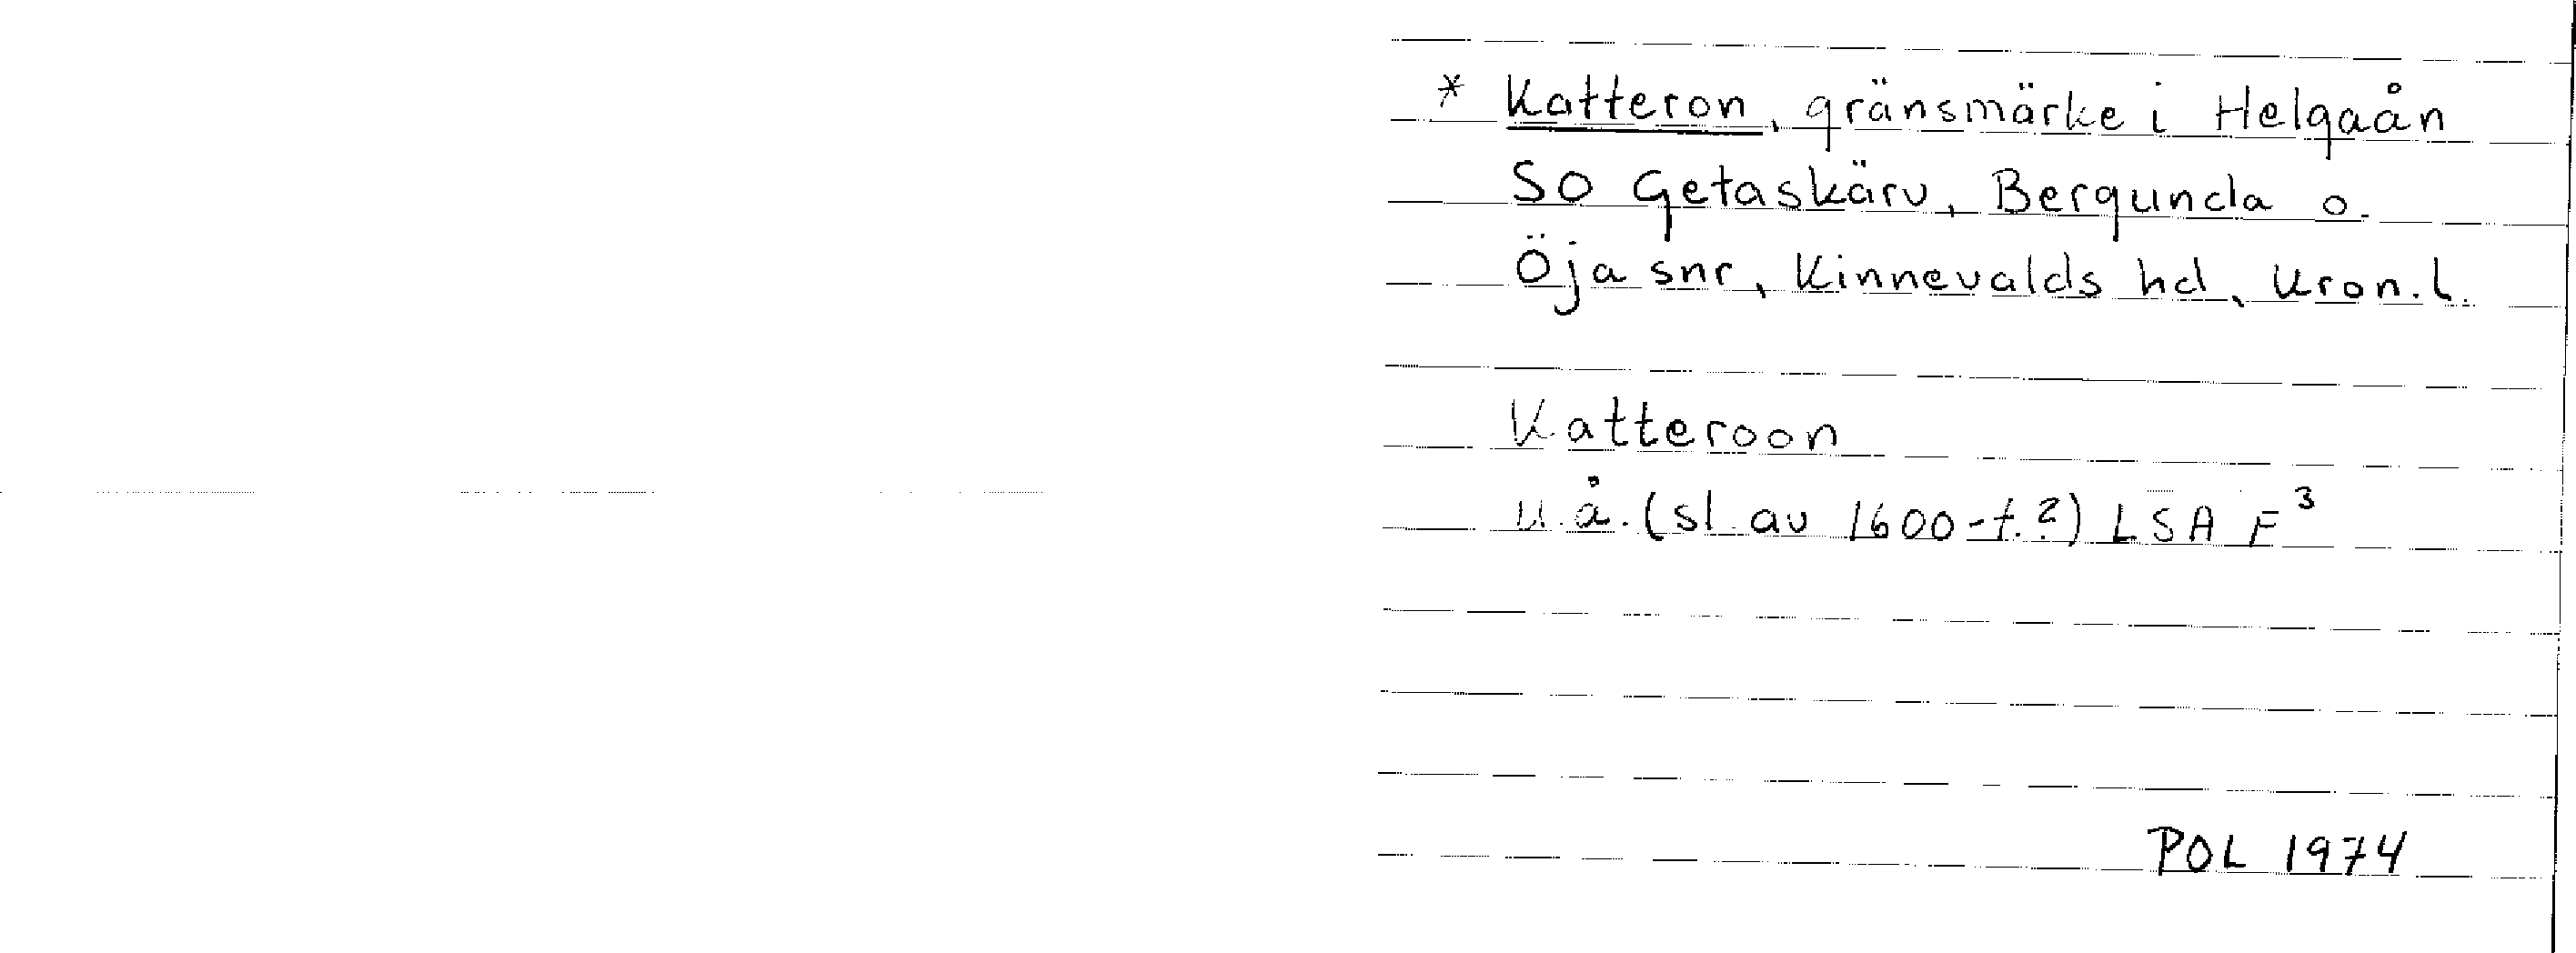 * Katteron, gränsmärke i Helgaån
SO Getaskärv, Bergunda o.
Öja snr, Kinnevalds hd, Kron. l.
Katteroon
u.å. (sl. av 1600-t.?) LSA F³
POL 1974